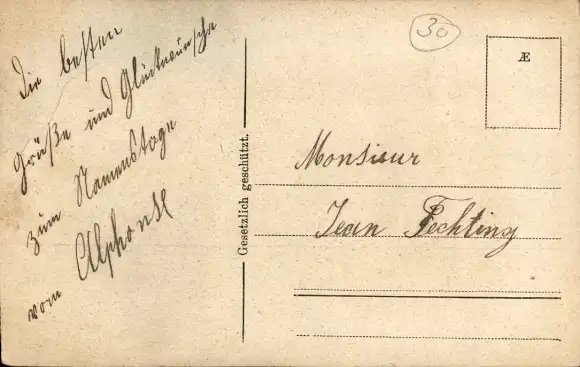 Die besten
Grüße und Glückwünsche
zum Namenstage
vom Alphonse
Gesetzlich geschützt.
30
Æ
Monsieur
Jean Fechting